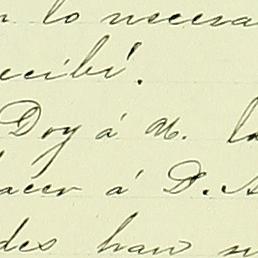 n lo necesa
ecibí.
Doy á M. la
acer á D. A
des han n